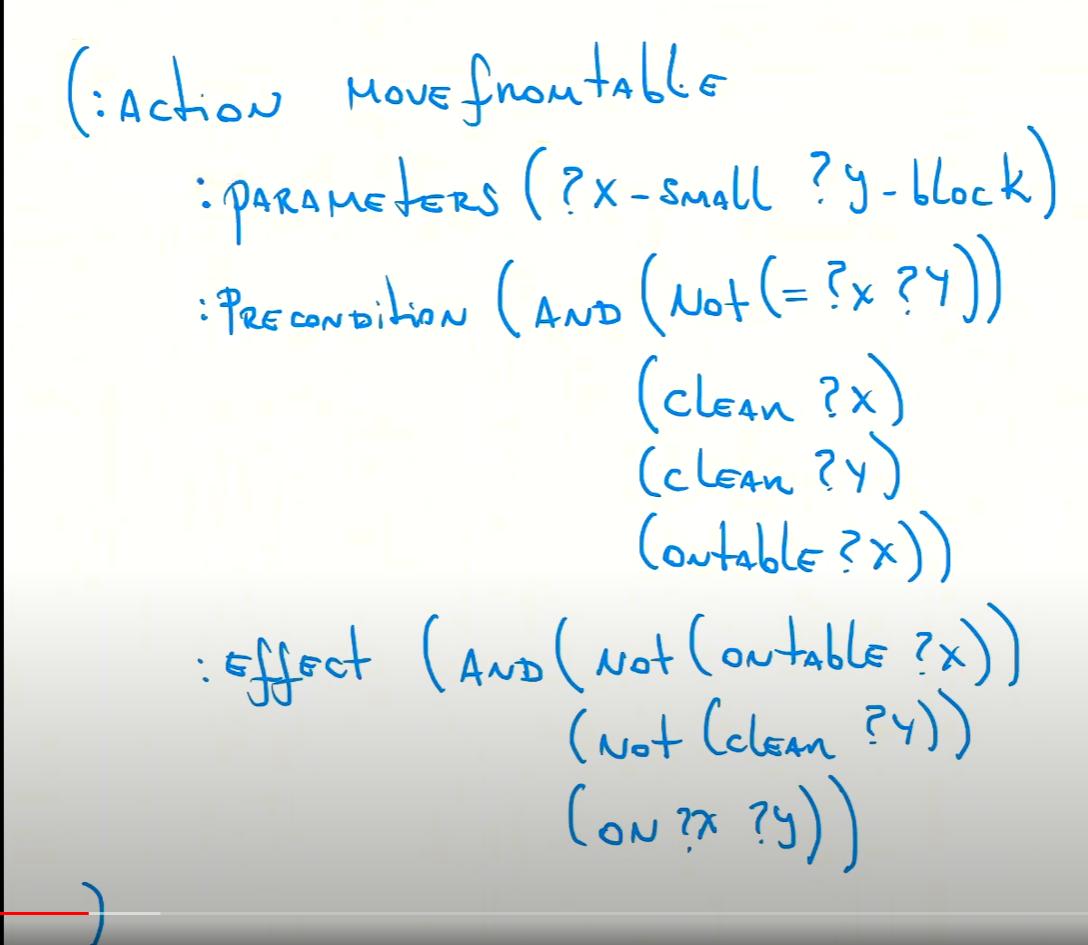 (:Action Movefromtable
:parameters (?x-small ?y-block)
:Precondition (AND (Not (= ?x ?y))
(clean ?x)
(clean ?y)
(ontable ?x))
:effect (AND (Not (ontable ?x))
(Not (clean ?y))
(ON ?x ?y))
)